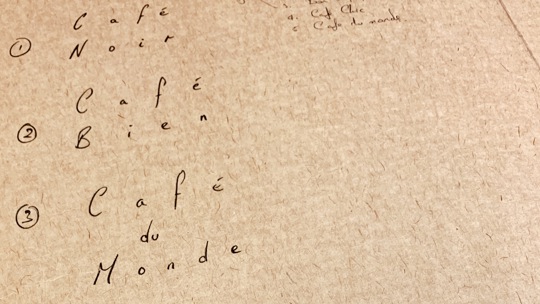 Café
① Noir
Café
② Bien
③ Café
du
Monde
4. Café Chic
5. Café du monde